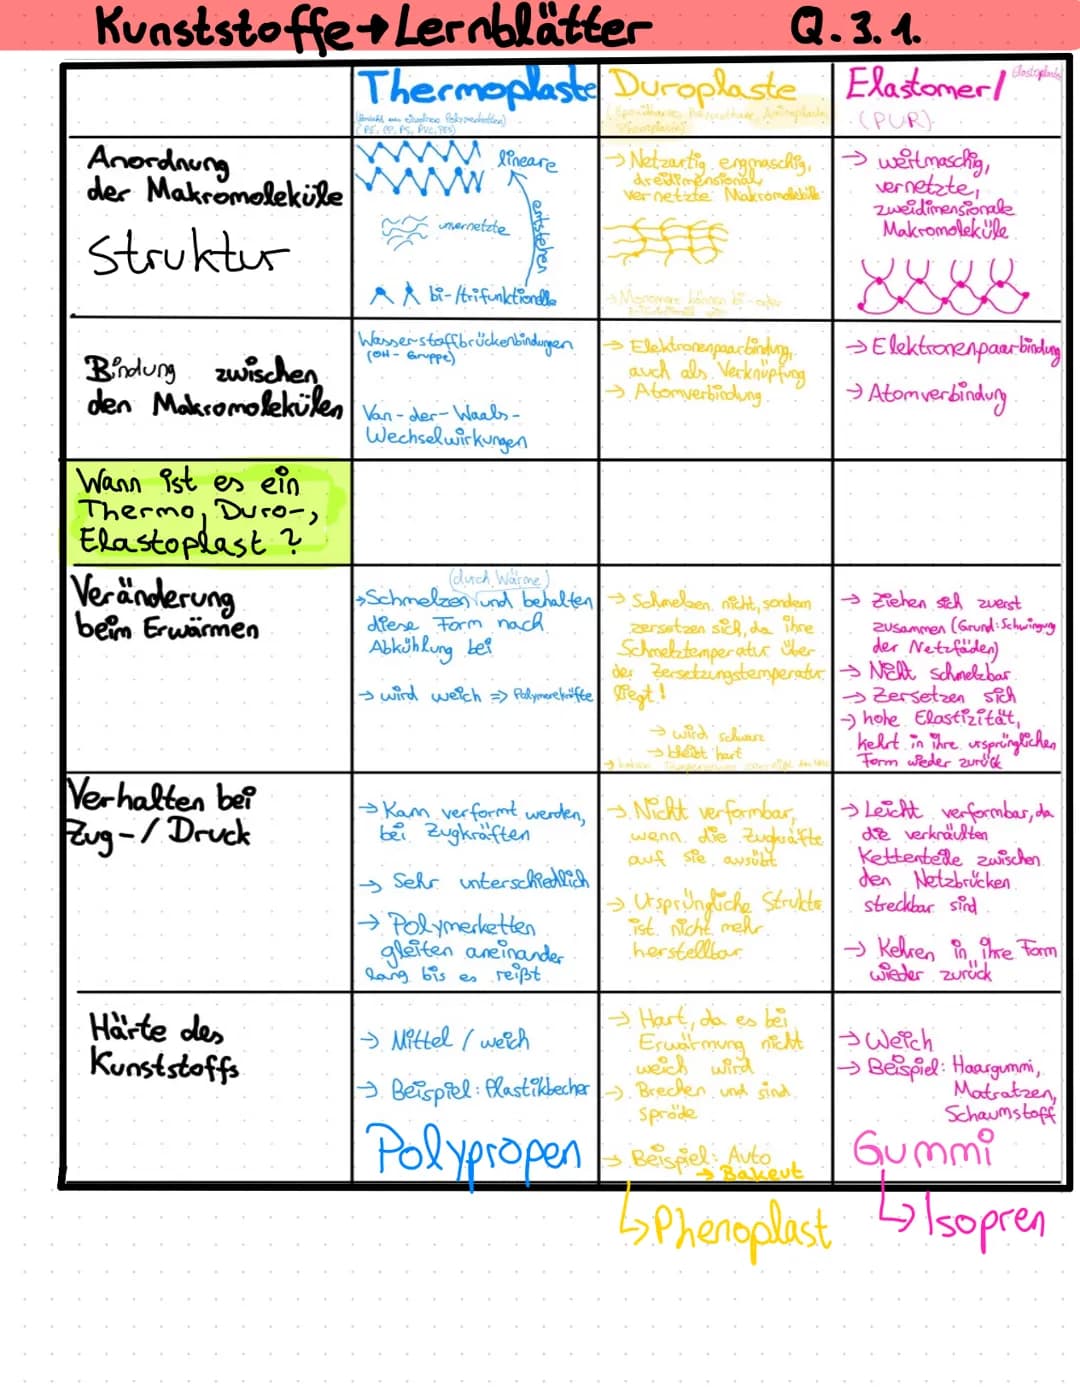 Kunststoffe → Lernblätter Q.3.1.
Thermoplaste
(PE, PP, PS, PVC, PES)
Duroplaste
Elastomer/
Elastoplaste
(PUR)
Anordnung
der Makromoleküle
Struktur
lineare
unvernetzte
entstehen
bi-/trifunktionelle
→ Netzartig engmaschig,
dreidimensional
vernetzte Makromoleküle
→ Monomere können bi- oder
→ weitmaschig,
vernetzte,
zweidimensionale
Makromoleküle
Bindung zwischen
den Makromolekülen
Wasserstoffbrückenbindungen
(OH-Gruppe)
Van-der-Waals-
Wechselwirkungen
→ Elektronenpaarbindung,
auch als Verknüpfung
→ Atomverbindung
→ Elektronenpaarbindung
→ Atomverbindung
Wann ist es ein
Thermo, Duro-,
Elastoplast?
Veränderung
beim Erwärmen
(durch Wärme)
→ Schmelzen und behalten
diese Form nach
Abkühlung bei
→ wird weich ⇒ Polymerkräfte
→ Schmelzen nicht, sondern
zersetzen sich, da ihre
Schmelztemperatur über
der Zersetzungstemperatur
liegt!
→ wird schwarz
→ bleibt hart
→ Ziehen sich zuerst
zusammen (Grund: Schwingung
der Netzfäden)
→ Nicht schmelzbar
→ Zersetzen sich
→ hohe Elastizität,
kehrt in ihre ursprünglichen
Form wieder zurück
Verhalten bei
Zug-/Druck
→ Kann verformt werden,
bei Zugkräften
→ Sehr unterschiedlich
→ Polymerketten
gleiten aneinander
lang bis es reißt
→ Nicht verformbar,
wenn die Zugkräfte
auf sie ausübt
→ Ursprüngliche Struktr
ist nicht mehr
herstellbar
→ Leicht verformbar, da
die verknäulten
Kettenteile zwischen
den Netzbrücken
streckbar sind
→ Kehren in ihre Form
wieder zurück
Härte des
Kunststoffs
→ Mittel / weich
→ Beispiel: Plastikbecher
Polypropen
→ Hart, da es bei
Erwärmung nicht
weich wird
→ Brechen und sind
spröde
→ Beispiel: Auto
→ Bakeut
↳ Phenoplast
→ Weich
→ Beispiel: Haargummi,
Matratzen,
Schaumstoff
Gummi
↳ Isopren